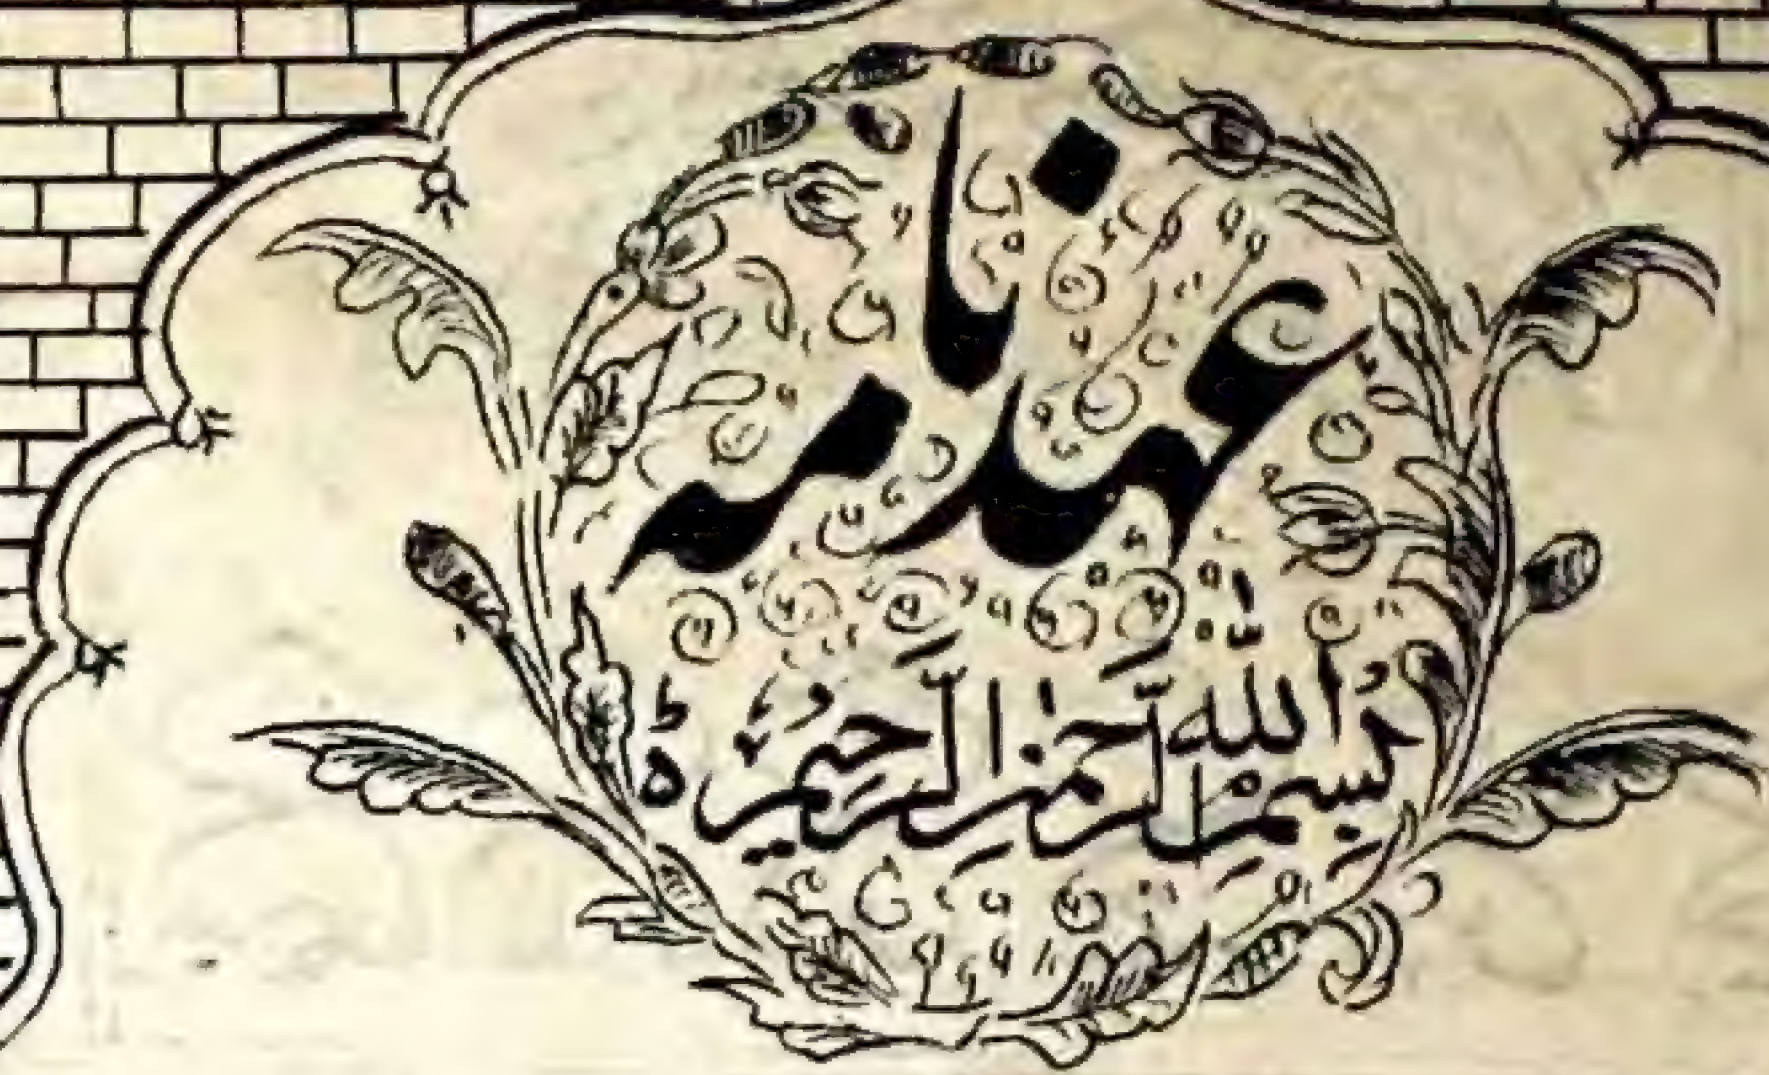 عہد نامہ
بِسْمِ اللّٰهِ الرَّحْمٰنِ الرَّحِيْمِ ط ه